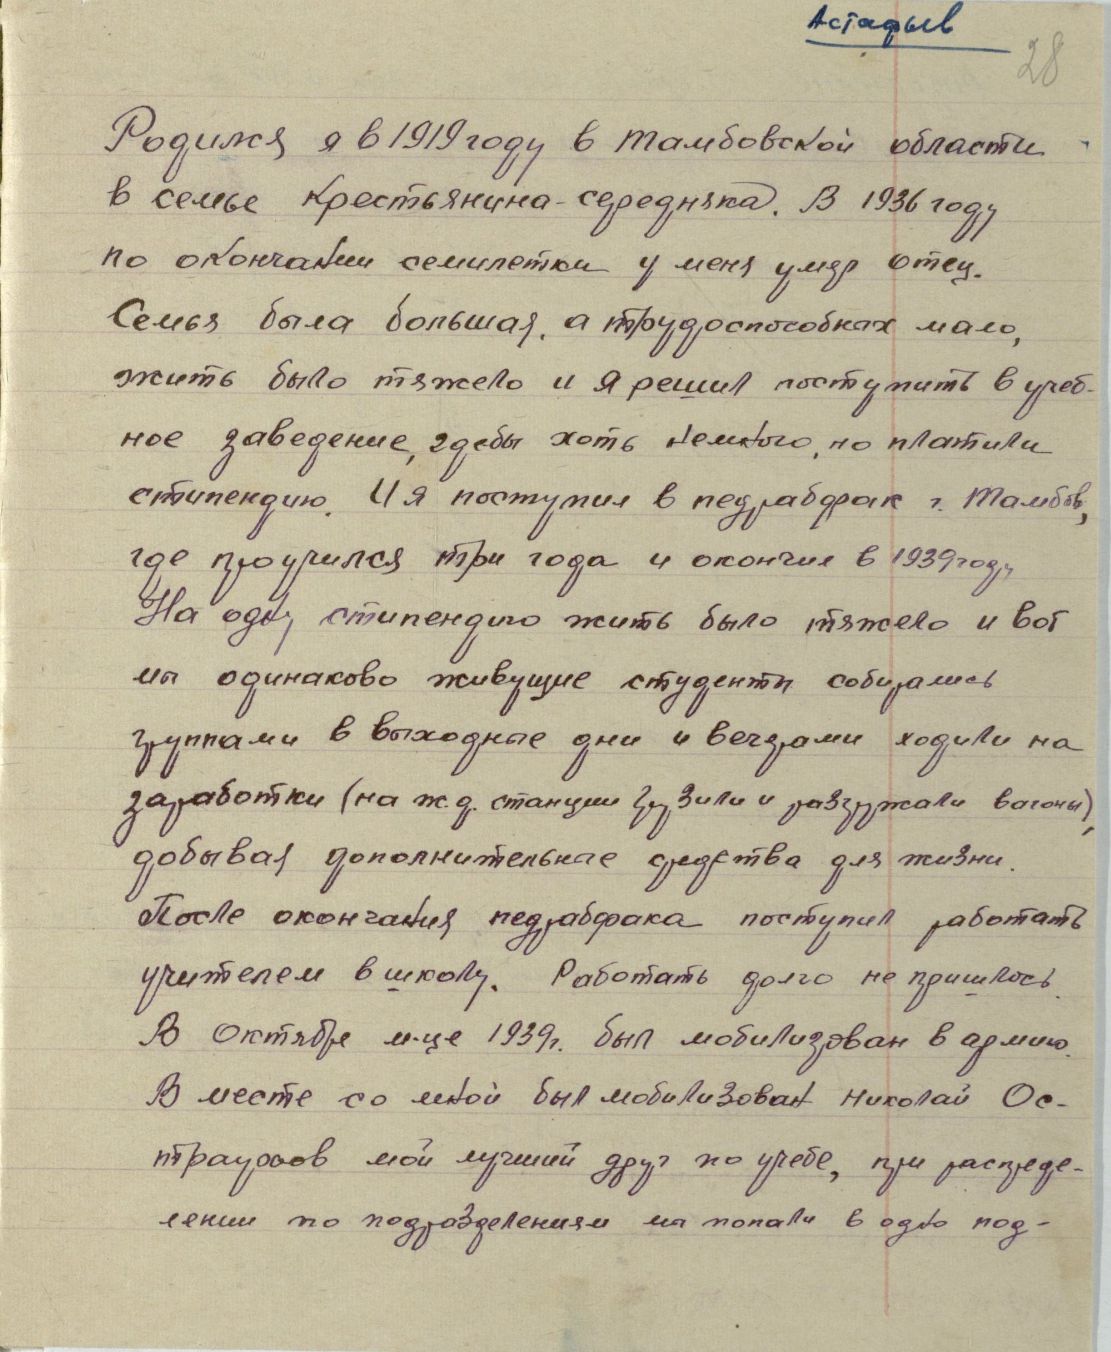 Астафьев
28
Родился я в 1919 году в Тамбовской области
в семье крестьянина-середняка. В 1936 году
по окончании семилетки у меня умер отец.
Семья была большая, а трудоспособных мало,
жить было тяжело и я решил поступить в учеб-
ное заведение, где бы хоть немного, но платили
стипендию. И я поступил в педрабфак г. Тамбов,
где проучился три года и окончил в 1939 году
На одну стипендию жить было тяжело и вот
мы одинаково живущие студенты собирались
группами в выходные дни и вечерами ходили на
заработки (на ж.д. станции грузили и разгружали вагоны),
добывая дополнительные средства для жизни.
После окончания педрабфака поступил работать
учителем в школу. Работать долго не пришлось.
В Октябре м-це 1939г. был мобилизован в армию.
В месте со мной был мобилизован Николай Ос-
мой лучший друг по учебе, при распреде-
лении по подразделениям мы попали в одно под-